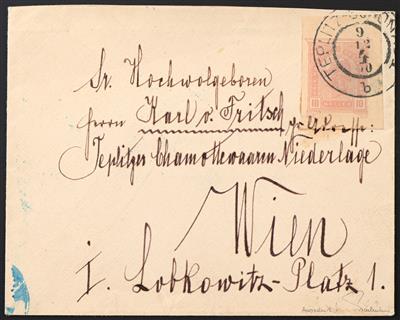 TEPLITZ-SCHÖNAU
9
12
b
10 HELLER 10
Sr. Hochwolgeboren
Herrn Karl v. Fritsch pr. Adresse:
Teplitzer Chamottewaaren Niederlage
Wien
I. Lobkowitz-Platz 1.